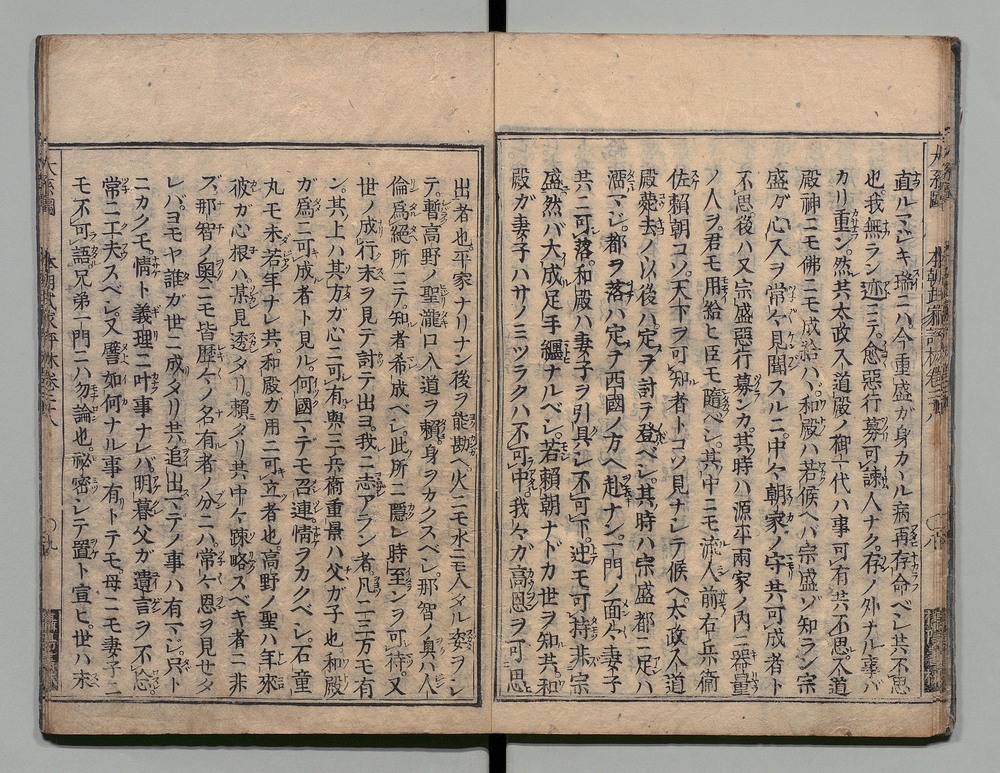 直ルマジキ瑞ニハ今重盛ガ身カヽル病再存命ベシ共不思
也我無ラン迹ニテ愈惡行募可諌人ナク存ノ外ナル事バ
カリ重ン然共太政入道殿ノ御一代ハ事可有共不思入道
殿神ニモ佛ニモ成給ハヾ和殿ハ若候ヘハ宗盛ゾ知ラン宗
盛ガ心入ヲ常々見聞スルニ中々朝家ノ守共可成者ト
不思後ハ又宗盛惡行募ンカ其時ハ源平兩家ノ内ニ器量
ノ人ヲ君モ用給ヒ臣モ隨ベシ其中ニモ流人前右兵衞
佐賴朝コソ天下ヲ可知者トコソ見ナシテ候ヘ太政入道
殿薨去ノ以後ハ定テ討テ登ベシ其時ハ宗盛都ニ足ハ
濡マジ都ヲ落ハ定テ西國ノ方ヘ赴ナン一門ノ面々妻子
共ニ可落和殿ハ妻子ヲ引具シ不可下迚モ可持非宗
盛然バ大成足手纒ナルベシ若賴朝ナドカ世ヲ知共和
殿ガ妻子ハサノミツラクハ不可中我々ガ高恩ヲ可思
出者也平家ナリナン後ヲ能勘ヘ火ニモ水ニモ入タル姿ヲシ
テ暫高野ノ聖瀧口入道ヲ賴身ヲカクスベシ那智ノ奧ハ人
倫爲絕所ニテ知者希成ベシ此所ニ隱レ時至ンヲ可待又
世ノ成行末ヲ見テ討テ出ヨ我ニ志アラン者凡二三万モ有
ン其上ハ其方ガ心ニ可有與三兵衞重景ハ父ガ子也和殿
ガ爲ニ可成者ト見ル何國マデモ召連情ヲカクベシ石童
丸モ未若年ナレ共和殿ガ用ニ可立者也高野ノ聖ハ年來
彼ガ心根ハ某見透タリ賴タリ共中々疎略スベキ者ニ非
ズ那智ノ奧ニモ皆歷々名有者ノ分ニハ常々恩ヲ見セタ
レバヨモヤ誰ガ世ニ成タリ共追出マデノ事ハ有マジ只ト
ニカクモ情ト義理ニ叶事ナレバ明暮父ガ遺言ヲ不忘
常ニ工夫スベシ又譬如何ナル事有トテモ母ニモ妻子ニ
モ不可語兄弟一門ニハ勿論也祕密シテ置ト宣ヒ世ハ末